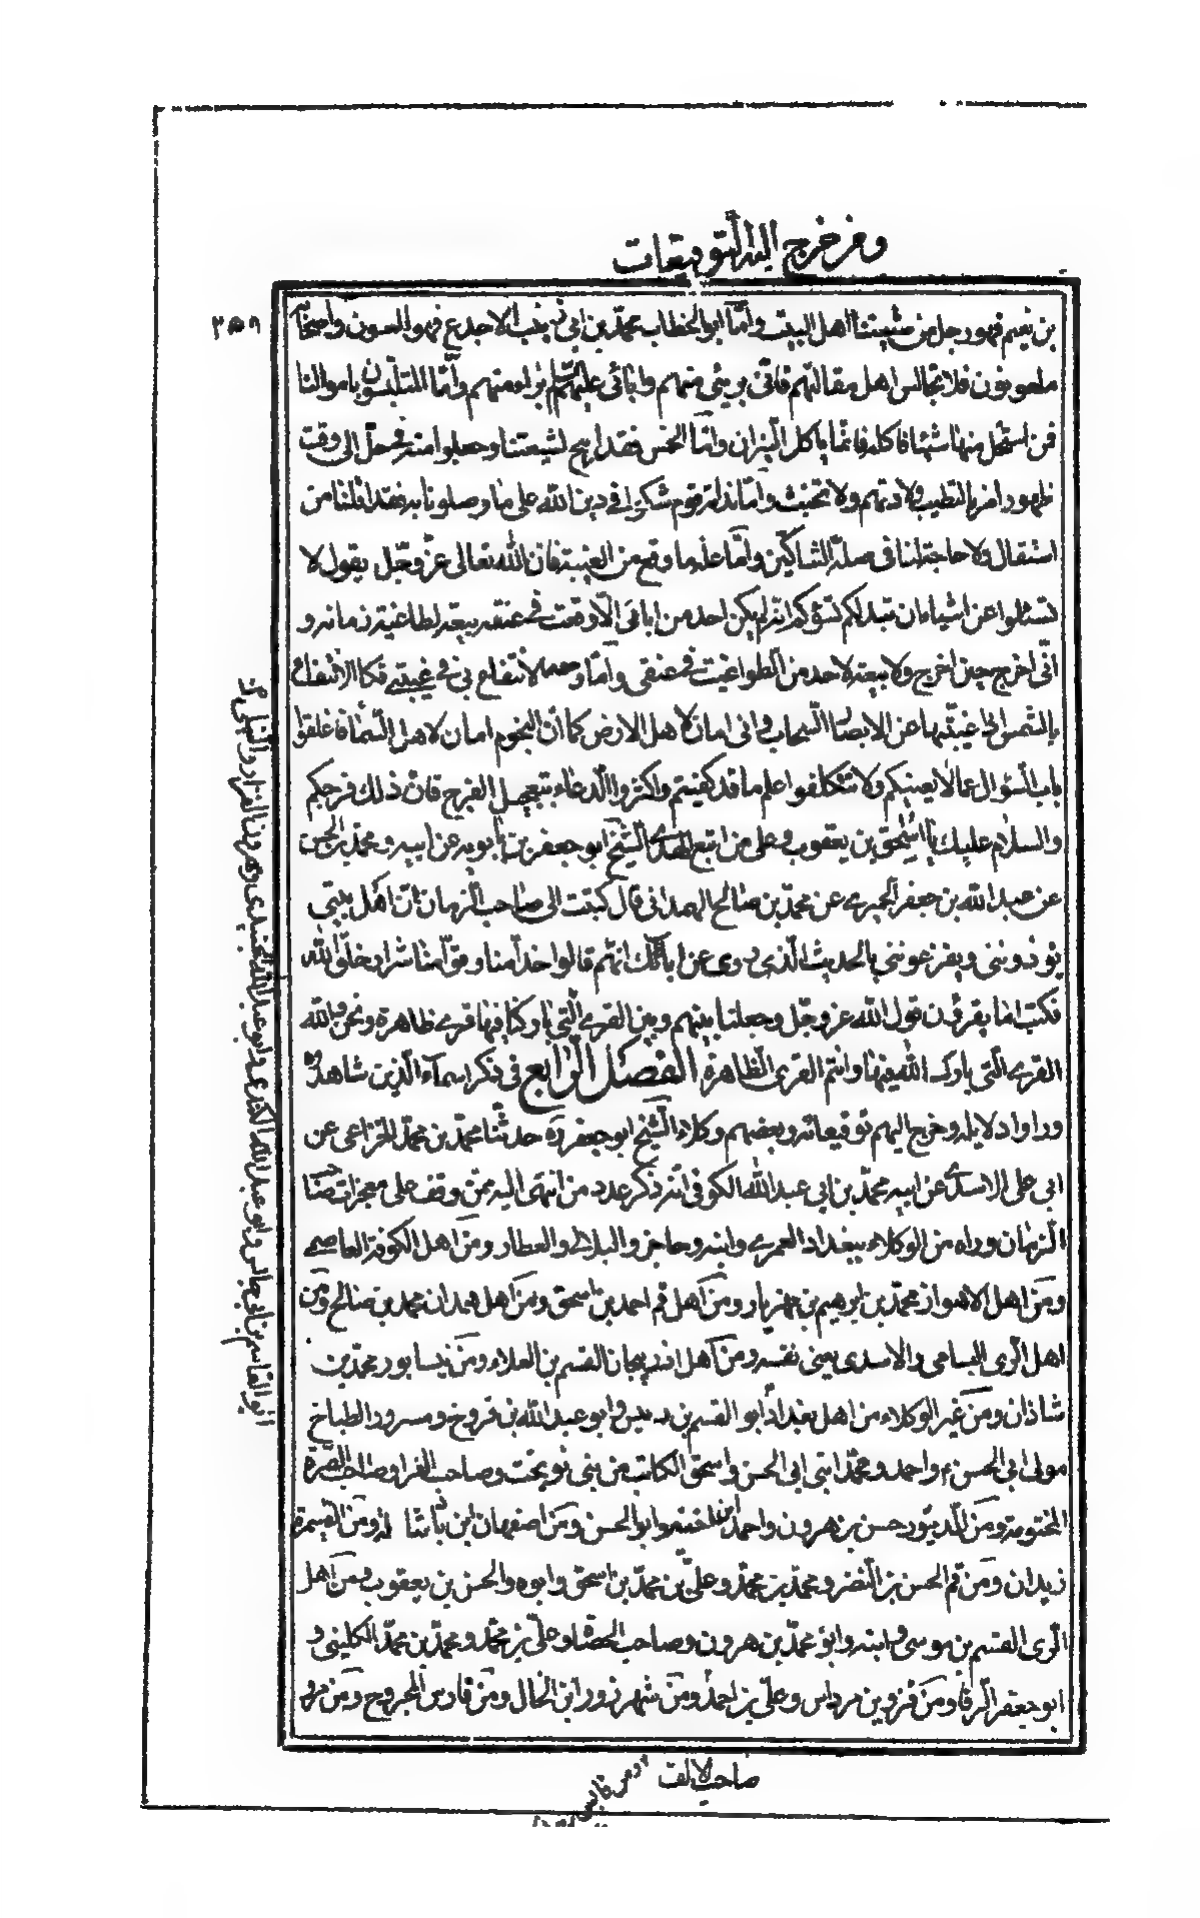 ومن خرج اليه التوقيعات
٢٥٩
بن نعيم فهو رجل من شيعتنا اهل البيت واما ابو الخطاب محمد بن ابي زينب الاجدع فهو الملعون واصحابه
ملعونون فلا تجالس اهل مقالتهم فانّى برىء منهم وابائى عليهم السلم براء منهم وامّا المتلبّسون باموالنا
فمن استحل منها شيئا فاكله فانما ياكل النيران وامّا الخمس فقد ابيح لشيعتنا وجعلوا منه في حلّ الى وقت
ظهور امرنا لتطيب ولادتهم ولا تخبث وامّا ندامة قوم شكوا في دين الله على ما وصلونا به فقد اقلنا من
استقال ولا حاجة لنا في صلة الشاكّين وامّا علة ما وقع من الغيبة فان الله تعالى عزّ وجّل يقول لا
تسئلوا عن اشياء ان تبد لكم تسؤكم انه لم يكن احد من ابائى الّا وقعت في عنقه بيعة لطاغية زمانه و
انّى اخرج حين اخرج ولا بيعة لاحد من الطواغيت في عنقي وامّا وجه الانتفاع بى في غيبتي فكالانتفاع
بالشمس اذا غيبتها عن الابصار السّحاب وانى امان لاهل الارض كما انّ النجوم امان لاهل السّماء فاغلقوا
باب السّؤال عمّا لا يعنيكم ولا تتكلفوا علم ما قد كفيتم واكثروا الدعاء بتعجيل الفرج فانّ ذلك فرجكم
والسلام عليك يا اسحق بن يعقوب وعلى من اتبع الهدى الشيخ ابو جعفر بن بابويه عن ابيه ومحمد بن الحسن
عن عبد الله بن جعفر الحميري عن محمد بن صالح الهمداني قال كتبت الى صاحب الزمان انّ اهل بيتي
يؤذونني ويقرعونني بالحديث الّذى روى عن ابائك انهم قالوا خدّامنا وقوّامنا شرار خلق الله
فكتب اما يقرؤن قول الله عز وجّل وجعلنا بينهم وبين القرى الّتي باركنا فيها قرى ظاهرة ونحن والله
القرى الّتي بارك الله فيها وانتم القرى الظاهرة الفصل الرابع في ذكر اسماء الذين شاهدوه
وراوا دلايله وخرج اليهم توقيعاته وبعضهم وكلاء الشيخ ابو جعفر ره حدثنا محمّد بن محمّد الخزاعى عن
ابى على الاسدى عن ابيه محمّد بن ابي عبد الله الكوفى انّه ذكر عدد من انتهى اليه ممّن وقف على معجزات صاحب
الزمان وراه من الوكلاء ببغداد العمرى وابنه وحاجز والبلالى والعطار ومن اهل الكوفة العاصمى
ومن اهل الاهواز محمّد بن ابرهيم بن مهزيار ومن اهل قم احمد بن اسحق ومن اهل همدان محمد بن صالح ومن
اهل الرى البسامى والاسدى يعنى نفسه ومن اهل اذربيجان القسم بن العلاء ومن نيسابور محمّد بن
شاذان ومن غير الوكلاء من اهل بغداد ابو القسم بن دبيس وابو عبد الله بن فروخ ومسرور الطباخ
مولى ابى الحسن ع واحمد ومحمّد ابنى ابى الحسن واسحق الكاتب من بنى نوبخت وصاحب الفراء وصاحب الصّرة
المختومة ومن الدينور حسن بن هرون واحمد ابن اخيه وابو الحسن ومن اصفهان ابن باشا له ومن الصيمرة
زيدان ومن قم الحسن بن النضر ومحمّد بن محمّد وعلىّ بن محمّد بن اسحق وابوه والحسن بن يعقوب ومن اهل
الرى القسم بن موسى وابنه وابو محمّد بن هرون وصاحب الحصاة وعلىّ بن محمّد ومحمّد بن محمّد الكلينى و
ابو جعفر الرفاء ومن قزوين مرداس وعلىّ بن احمد ومن شهرزور ابن الخال ومن فارس المجروح ومن مرو
صاحب الالف
ابو القاسم بن ابي حابس وابو عبد الله الكندى وابو عبد الله الجنيدى وهرون القزاز والنيلى